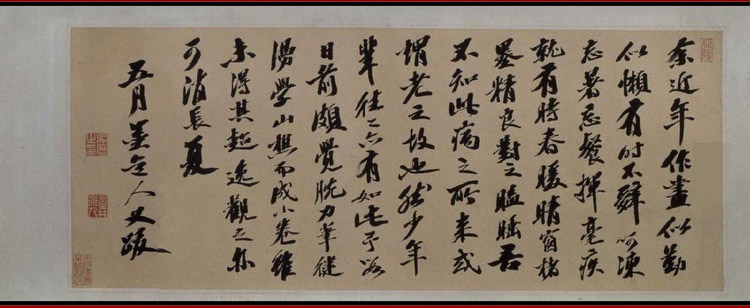 余近年作畫似勤
似懶有时不辭呵凍
忘暑忘餐揮毫疾
就有時春暖晴窗楮
墨精良對之瞌睡吾
不知此病之所來或
謂老之故也然少年
輩往〻亦有如此予
日前頗覺腕力筆健
學山樵而成小卷雖
未得其超逸觀之亦
可消長夏
五月墨人又跋